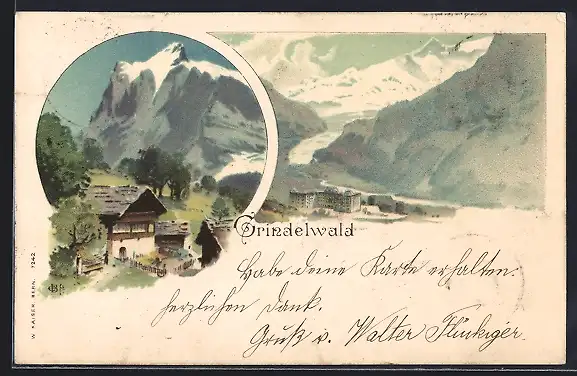 Grindelwald
Habe deine Karte erhalten.
herzlichen Dank.
Gruß v. Walter Flückiger.
W. KAISER. BERN. 1242